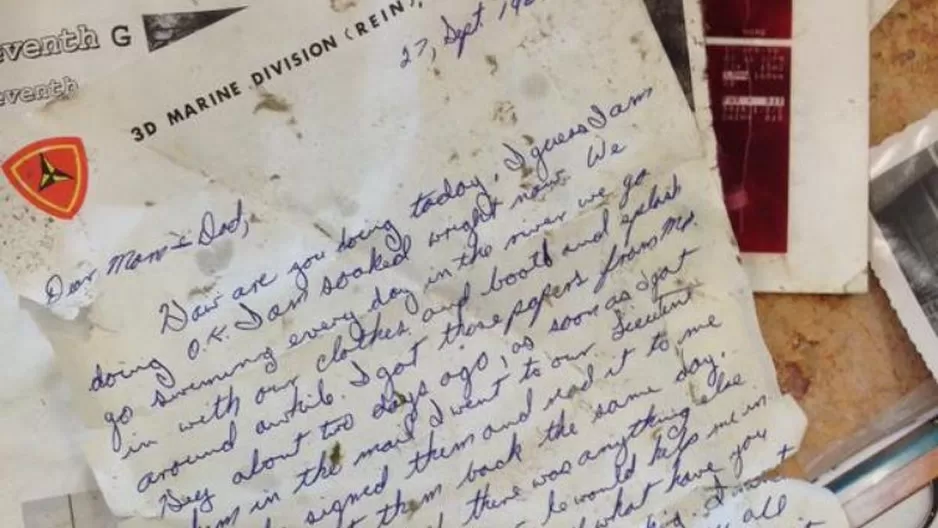 eventh G
eventh
3D MARINE DIVISION (REIN),
27, Sept. 19
Dear Mom + Dad,
How are you doing today, I guess I am
doing O.K. I am soaked wright now. We
go swiming every day in the river we go
in with our clothes and boots and splash
around awhile. I got those papers from Mr.
Dey about two days ago, as soon as I got
them in the mail I went to our
signed them and read it to me
them back the same day.
there was anything else
he would help me in
what have you
all